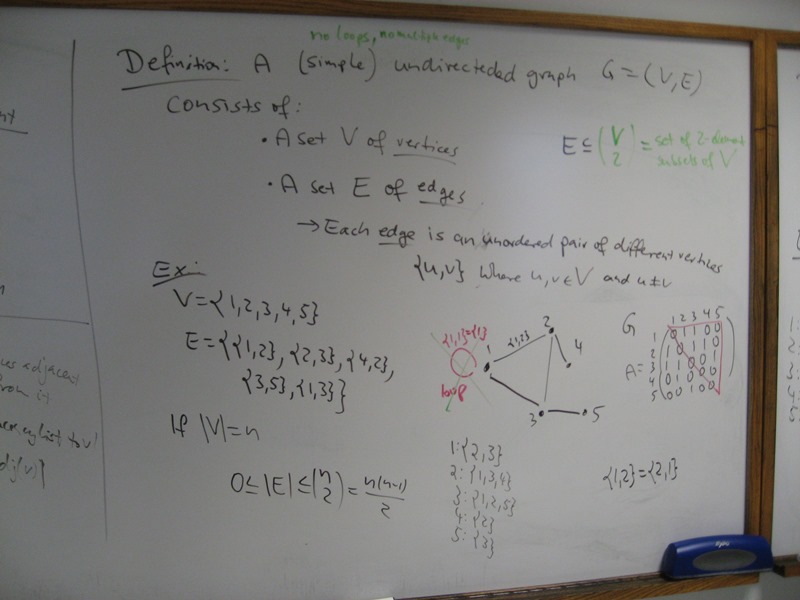 no loops, no multiple edges
Definition: A (simple) undirecteded graph G=(V,E)
consists of:
• A set V of vertices
E ⊆ (V 2) = set of 2-element
subsets of V
• A set E of edges
→ Each edge is an unordered pair of different vertices
{u,v} where u,v ∈ V and u ≠ v
Ex:
V={1,2,3,4,5}
E={{1,2}, {2,3}, {4,2},
{3,5}, {1,3}}
If |V|=n
0 ≤ |E| ≤ (n 2) = n(n-1)/2
{1,1}={1}
loop
1
{1,2}
2
4
3
5
1:{2,3}
2:{1,3,4}
3:{1,2,5}
4:{2}
5:{3}
G
1 2 3 4 5
A=
1 0 1 1 0 0
2 1 0 1 1 0
3 1 1 0 0 1
4 0 1 0 0 0
5 0 0 1 0 0
{1,2}={2,1}
adjacent
expo
1:
2:
3:
4:
5: